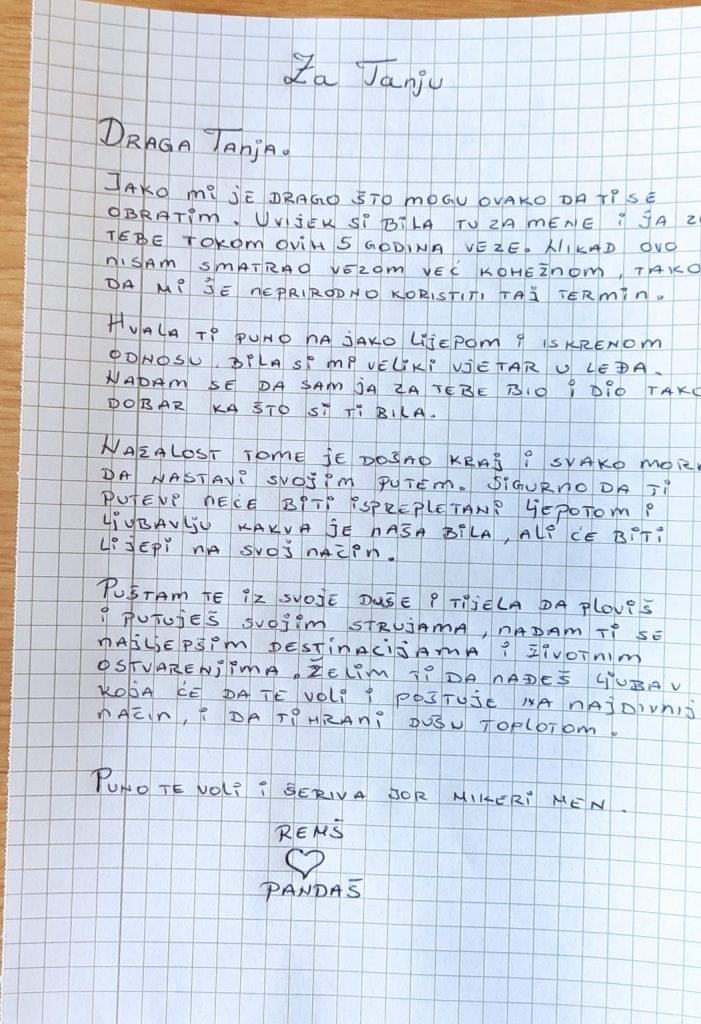 Za Tanju
DRAGA TANJA.
JAKO MI JE DRAGO ŠTO MOGU OVAKO DA TI SE
OBRATIM. UVIJEK SI BILA TU ZA MENE I JA Z
TEBE TOKOM OVIH 5 GODINA VEZE. NIKAD OVO
NISAM SMATRAO VEZOM VEĆ KOHEŽNOM, TAKO
DA MI JE NEPRIRODNO KORISTITI TAJ TERMIN.
HVALA TI PUNO NA JAKO LIJEPOM I ISKRENOM
ODNOSU, BILA SI MI VELIKI VJETAR U LEĐA.
NADAM SE DA SAM JA ZA TEBE BIO I DIO TAKO
DOBAR KA ŠTO SI TI BILA.
NAŽALOST TOME JE DOŠAO KRAJ I SVAKO MORA
DA NASTAVI SVOJIM PUTEM. SIGURNO DA TI
PUTEVI NEĆE BITI ISPREPLETANI LJEPOTOM I
LJUBAVLJU KAKVA JE NAŠA BILA, ALI ĆE BITI
LIJEPI NA SVOJ NAČIN.
PUŠTAM TE IZ SVOJE DUŠE I TIJELA DA PLOVIŠ
I PUTUJEŠ SVOJIM STRUJAMA, NADAM TI SE
NAJLJEPŠIM DESTINACIJAMA I ŽIVOTNIM
OSTVARENJIMA. ŽELIM TI DA NAĐEŠ LJUBAV
KOJA ĆE DA TE VOLI I POŠTUJE NA NAJDIVNIJ
NAČIN, I DA TI HRANI DUŠU TOPLOTOM.
PUNO TE VOLI I ŠERIVA JOR MIKERI MEN.
REMŠ
PANDAŠ